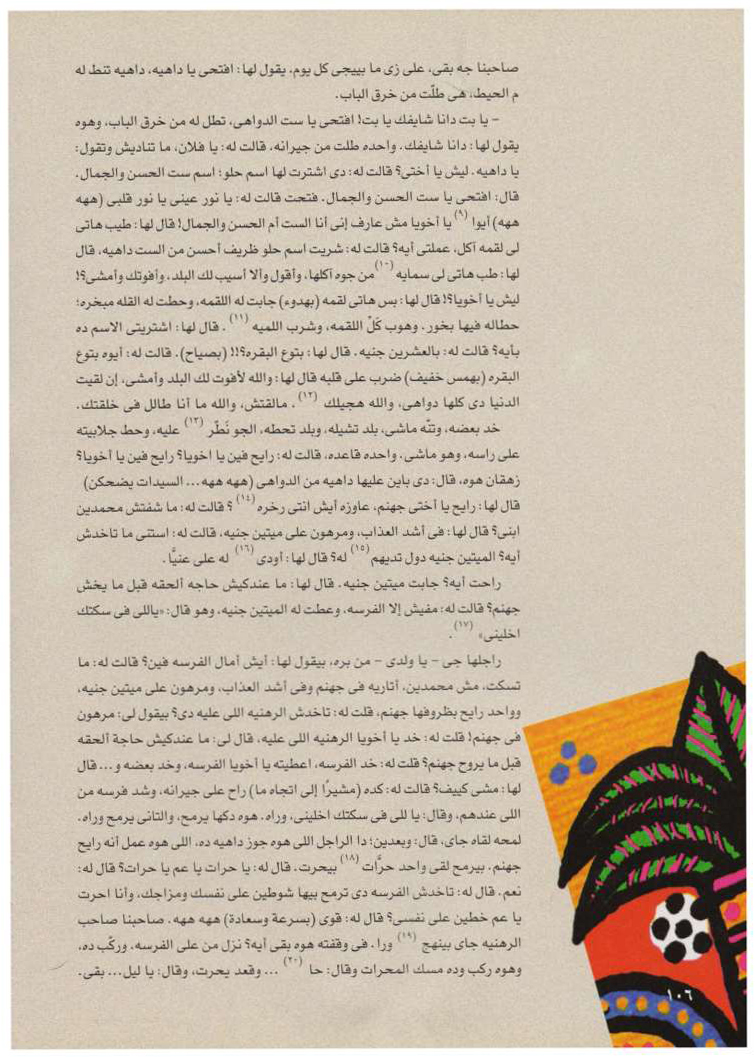 صاحبنا جه بقى، على زى ما بييجى كل يوم، يقول لها: افتحى يا داهيه، داهيه تنط له
م الحيط، هى طلّت من خرق الباب.
- يا بت دانا شايفك يا بت! افتحى يا ست الدواهى، تطل له من خرق الباب، وهوه
يقول لها: دانا شايفك. واحده طلت من جيرانه، قالت له: يا فلان، ما تناديش وتقول:
يا داهيه. ليش يا أختى؟ قالت له: دى اشترت لها اسم حلو؛ اسم ست الحسن والجمال.
قال: افتحى يا ست الحسن والجمال. فتحت قالت له: يا نور عينى يا نور قلبى (ههه
ههه) أيوا (٩) يا أخويا مش عارف إنى أنا الست أم الحسن والجمال! قال لها: طيب هاتى
لى لقمه آكل، عملتى أيه؟ قالت له: شريت اسم حلو ظريف أحسن من الست داهيه، قال
لها: طب هاتى لى سمايه (١٠) من جوه آكلها، وأقول وألا أسيب لك البلد، وأفوتك وأمشى؟!
ليش يا أخويا؟! قال لها: بس هاتى لقمه (بهدوء) جابت له اللقمه، وحطت له القله مبخره؛
حطاله فيها بخور. وهوب كَلْ اللقمه، وشرب اللميه (١١). قال لها: اشتريتى الاسم ده
بأيه؟ قالت له: بالعشرين جنيه. قال لها: بتوع البقره؟!! (بصياح). قالت له: أيوه بتوع
البقره (بهمس خفيف) ضرب على قلبه قال لها: والله لأفوت لك البلد وأمشى، إن لقيت
الدنيا دى كلها دواهى، والله هجيلك (١٢)، مالقتش، والله ما أنا طالل فى خلقتك.
خد بعضه، وتنّه ماشى، بلد تشيله، وبلد تحطه، الجو نَطّر (١٣) عليه، وحط جلابيته
على راسه، وهو ماشى. واحده قاعده، قالت له: رايح فين يا اخويا؟ رايح فين يا أخويا؟
زهقان هوه، قال: دى باين عليها داهيه من الدواهى (ههه ههه... السيدات يضحكن)
قال لها: رايح يا أختى جهنم، عاوزه أيش انتى رخره (١٤)؟ قالت له: ما شفتش محمدين
ابنى؟ قال لها: فى أشد العذاب، ومرهون على ميتين جنيه، قالت له: استنى ما تاخدش
أيه؟ الميتين جنيه دول تديهم (١٥) له؟ قال لها: أودى (١٦) له على عنيَّا.
راحت أيه؟ جابت ميتين جنيه. قال لها: ما عندكيش حاجه ألحقه قبل ما يخش
جهنم؟ قالت له: مفيش إلا الفرسه، وعطت له الميتين جنيه، وهو قال: «ياللى فى سكتك
اخلينى» (١٧).
راجلها جى - يا ولدى - من بره، بيقول لها: أيش أمال الفرسه فين؟ قالت له: ما
تسكت، مش محمدين، أتاريه فى جهنم وفى أشد العذاب، ومرهون على ميتين جنيه،
وواحد رايح بظروفها جهنم، قلت له: تاخدش الرهنيه اللى عليه دى؟ بيقول لى: مرهون
فى جهنم! قلت له: خد يا أخويا الرهنيه اللى عليه، قال لى: ما عندكيش حاجة ألحقه
قبل ما يروح جهنم؟ قلت له: خد الفرسه، اعطيته يا أخويا الفرسه، وخد بعضه و... قال
لها: مشى كييف؟ قالت له: كده (مشيرًا إلى اتجاه ما) راح على جيرانه، وشد فرسه من
اللى عندهم، وقال: يا للى فى سكتك اخلينى، وراه. هوه دكها يرمح، والتانى يرمح وراه.
لمحه لقاه جاى، قال: وبعدين؛ دا الراجل اللى هوه جوز داهيه ده، اللى هوه عمل أنه رايح
جهنم. بيرمح لقى واحد حرَّات (١٨) بيحرت. قال له: يا حرات يا عم يا حرات؟ قال له:
نعم. قال له: تاخدش الفرسه دى ترمح بيها شوطين على نفسك ومزاجك، وأنا احرت
يا عم خطين على نفسى؟ قال له: قوى (بسرعة وسعادة) ههه ههه. صاحبنا صاحب
الرهنيه جاى بينهج (١٩) ورا. فى وقفته هوه بقى أيه؟ نزل من على الفرسه، وركّب ده،
وهوه ركب وده مسك المحرات وقال: حا (٢٠) ... وقعد يحرت، وقال: يا ليل... بقى.
١٠٦